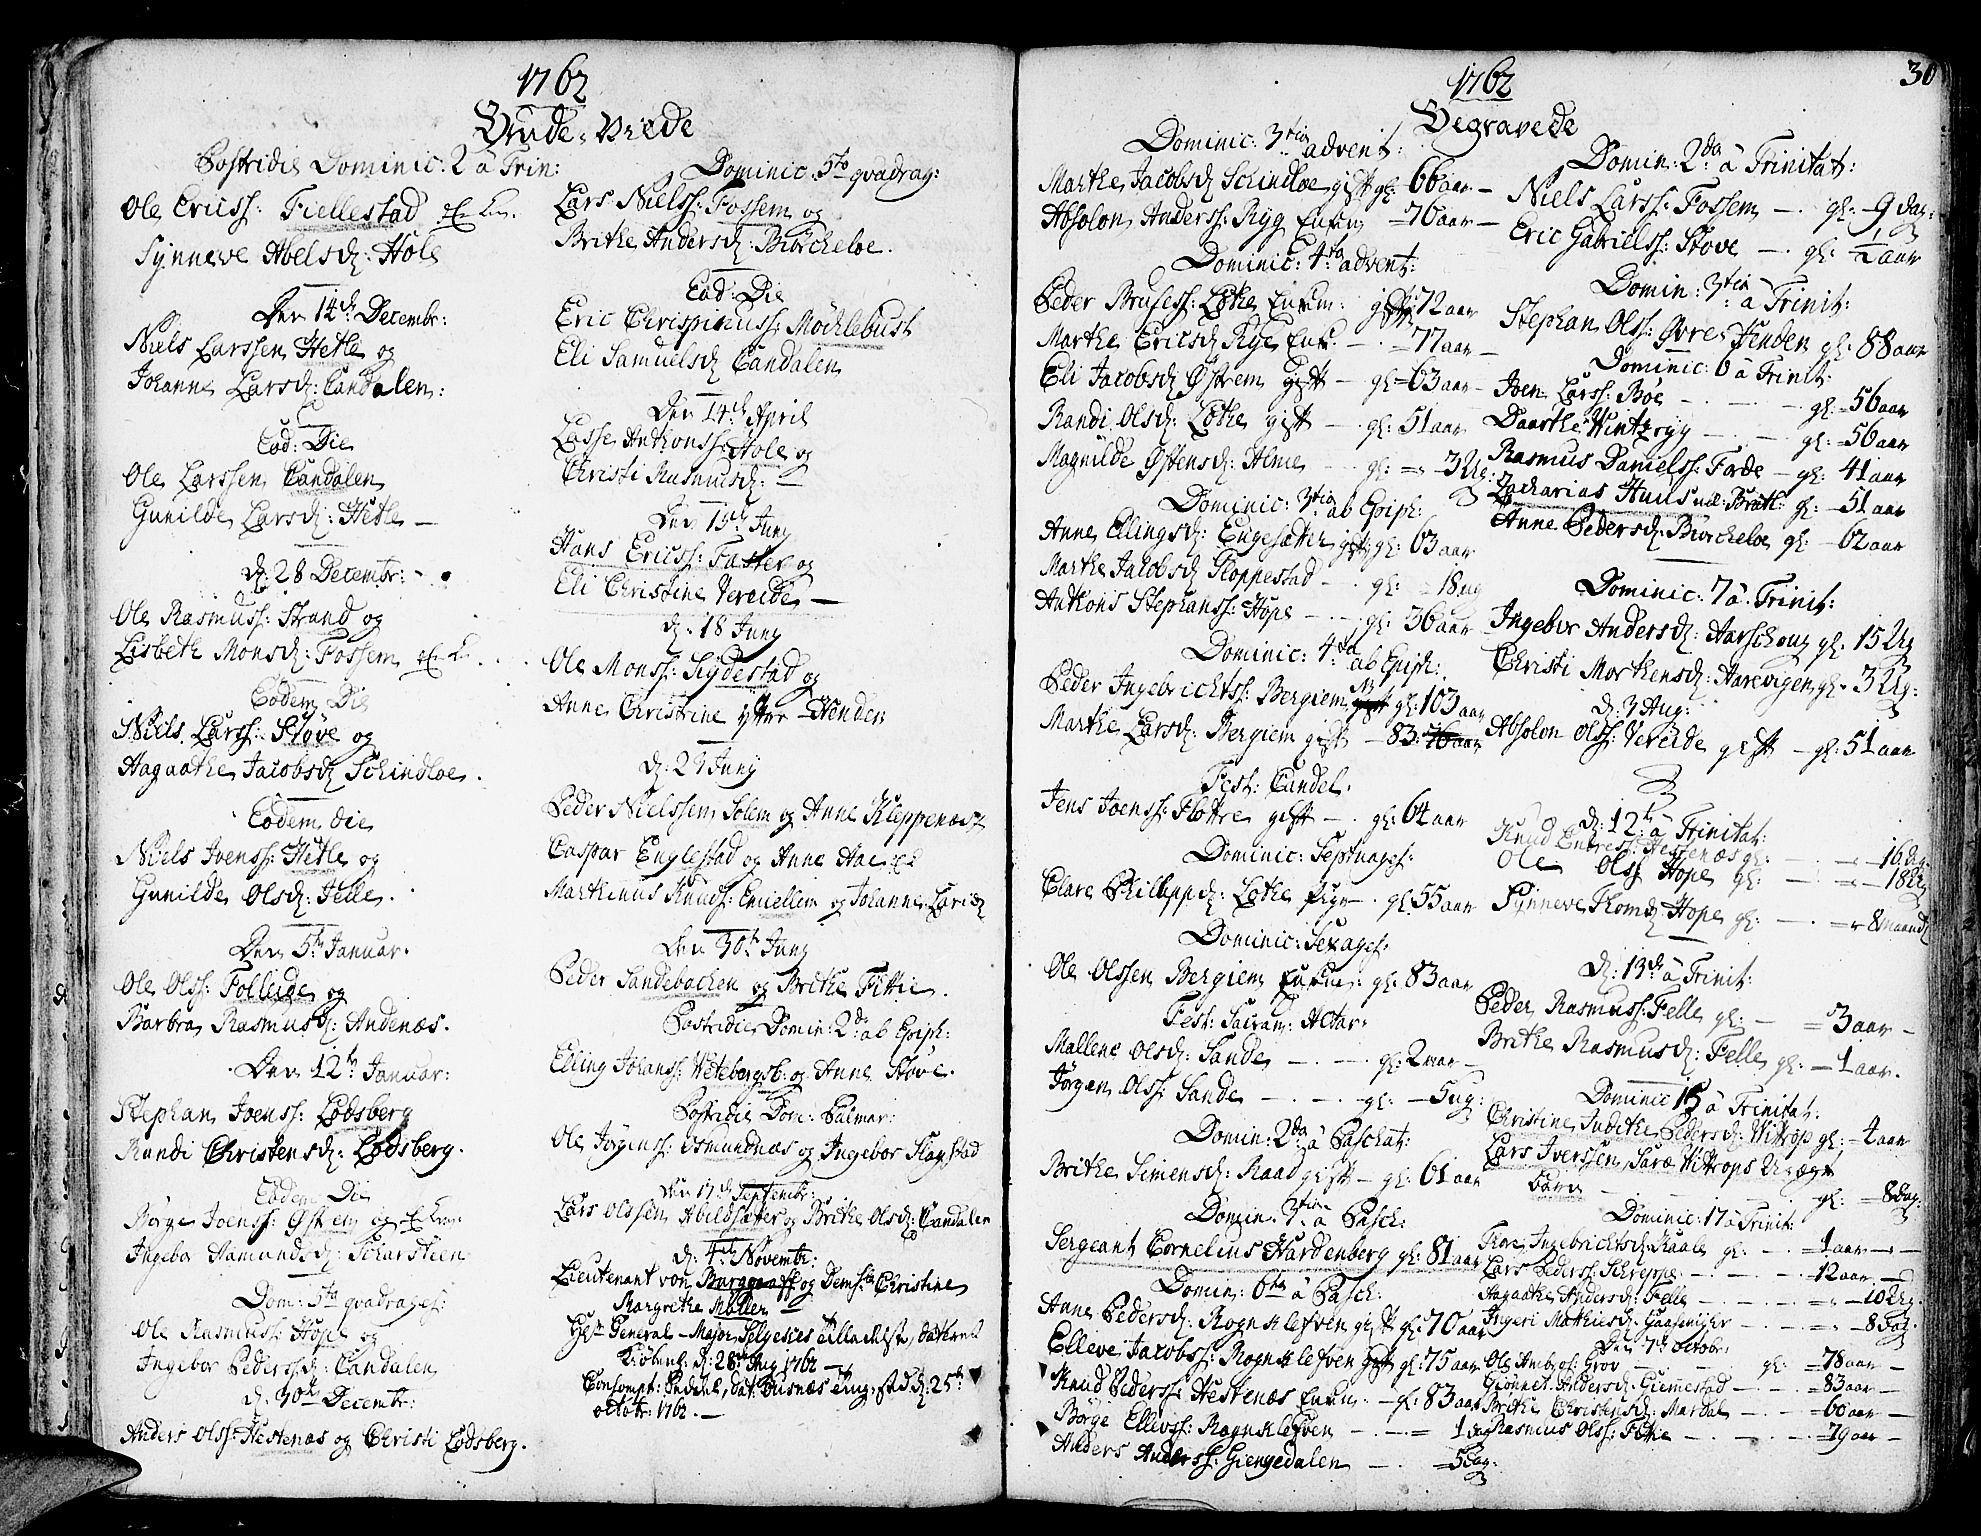 1762
Brude-Viede
Postridie Dominic: 2 â Trin:
Ole Ericss: Fiellestad
Synneve Abelsd: Hole
Den 14de Decembr:
Niels Larssen Hetle og
Johanne Larsd: Candalen:
Eod: Die
Ole Larssen Candalen
Gunilde Larsd: Hetle —
d: 28 Decembr:
Ole Rasmuss: Strand og
Lisbeth Monsd: Fossem
Eodem Die
Niels Larss: Støve og
Aagaathe Jacobsd Schindloe.
Eodem die
Niels Ivenss: Hetle og
Gunilde Olsd: Felle.
Den 5te Januar.
Ole Olss: Folleide og
Barbra Rasmusd: Andenæs.
Den 12te Januar:
Stephan Joenss: Lødsberg
Randi Christensd: Lødsberg.
Eodem Die
Børge Joenss: Østrem og
Ingebor Aamundsd: Scharsteen
Dom: 5ta qvadrages:
Ole Rasmuss: Hope og
Ingebor Pederssd: Candalen
d: 30te Decembr:
Anders Olss: Hestenæs og Christi Lødsberg.
Dominic: 5to qvadrag:
Lars Nielss: Fossem og
Brithe Andersd: Biörcheloe.
Eod: Die
Eric Chrispinuss: Möchlebust
Eli Samuelsd Candalen
Den 14de April
Lasse Anthonss: Hole og
Christi Rasmusd: —
Den 15de Juny
Hans Ericss: Fatter og
Eli Christine Vereide —
d: 18 Juny
Ole Monss: Sigdestad og
Anne Christine yttre Henden
d: 29 Juny
Peder Nielssen Solem og Anne Kleppenæs
Caspar Englestad og Anne Aae
Marthinus Knuds: Emellem og Johanne Larsd
Den 30te Juny
Peder Sandebachen og Brithe Fittie.
Postridie Domin: 2da ab Epiph:
Elling Johanss: Wetebergsb: og Anne Støve.
Postridie Dom: Palmar:
Ole Jørgenss: Osmundnæs og Ingebor Slagstad
Den 17de Septembr:
Lars Olssen Abildsætter og Brithe Olsd: Candalen
d: 4de Novembr:
Lieutenant von Burggraff og Demslle Christine
Margrethe Møller —
General-Major Selgesies Tilladelse, dateret
Kiøbenh: d: 28de Aug 1762 —
Consompt: Seddel, dat: Dusnæs d: 25de
Octobr: 1762. —
1762
30
Begravede
Dominic: 3tia advent:
Marthe Jacobsd Schindloe gift gl: 66 aar —
Absolon Anderss: Ryg Enkm = 76 aar —
Dominic: 4ta advent:
Peder Brusess: Løthe Enkm: 72 aar
Marthe Ericsd Rye Enk: — = 77 aar —
Eli Jacobsd Østrem gift — gl = 63 aar —
Randi Olsd: Løthe gift — gl: 51 aar
Magnilde Østensd: Alme — gl: = 3 Ug:
Dominic: 3tia ab Epiph:
Anne Ellingsd: Engesætter gift gl: 63 aar
Marthe Jacobsd Floppestad — gl: = 18 ug
Anthoni Stephanss: Hope — gl: 36 aar
Dominic: 4ta ab Epiph:
Peder Ingebrichtss: Bergiem gl: 103 aar
Marthe Larsd: Bergiem gift — 83: 76 aar
Fest: Candel.
Jens Joenss: Flottre gift — gl: 64 aar
Dominic: Septuages:
Clare Philippd: Løthe Pige — gl: 55 aar
Dominic: Sexages:
Ole Olssen Bergiem Enkm: gl: 83 aar
Fest: Sacram: Altar:
Mallene Olsd: Sande — gl: 2 aar —
Jørgen Olss: Sande — gl: — 5 ug:
Domin: 2da â Paschat:
Brithe Simensd: Raad gift — gl: 61 aar
Domin: 3tia â Pasch:
Sergeant Cornelius Hardenberg gl: 81 aar
Domin: 6ta â Pasch:
Anne Pedersd: Rognklefven gift gl: 70 aar
Elleve Jacobss: Rognklefven gift gl: 75 aar
Knud Pederss: Hestenæs Enkm: — gl: 83 aar
Børge Ellevss: Rognklefven — = 1 dag
Anders Anderss: Giengedalen — = 5 Dag:
Domin: 2da â Trinitat:
Niels Larss: Fossem — gl: — 9 dag:
Eric Gabrielss: Støve — gl: 1/2 aar
Domin: 3tia â Trinit:
Stephan Olss: Øvre Henden gl: 88 aar
Dominic: 6 â Trinit:
Joen Larss: Böe — gl: = 56 aar
Daarthe Wintz Ryg — gl: = 56 aar
Rasmus Danielss: Førde — gl: 41 aar
Zacharias Huus — gl: — 51 aar
Anne Pedersd: Biørcheloe gl: — 62 aar
Dominic: 7 â Trinit:
Ingebor Andersd: Aarschoug gl: 15 Ug
Christi Morthensd: Aarevigen gl = 3 Ug:
d: 3 Aug:
Absolon Olss: Vereide gift — gl: 51 aar
d: 12te â Trinitat:
Knud Endress: Hestenæs gl: — = — 16 dg:
Ole Olss Hope gl: — = — 18 Ug
Synneve Thomd: Hope gl: — = 8 maand
d: 13de â Trinit:
Peder Rasmuss: Felle gl: — = 3 aar —
Brithe Rasmusd: Felle gl: — 1 aar.
Dominic 15 â Trinitat:
Christine Judithe Pedersd: Wittrop gl: — 4 aar
Lars Iverssen Saræ Wittrops Uægte
Barn — gl: — 8 Dag:
Dominic: 17 â Trinit:
Thore Ingebrichtsd: Raale gl: — = 1 aar —
Lars Pederss: Schreppe — 12 aar —
Aagaathe Andersd: Felle — = 10 Ug.
Ingeri Mathiusd: Gaasemyhr — = 8 Dag
Den 7de Octobr:
Ole Ambros: Grov — gl: = 78 aar —
Giønnet Andersd: Giemmestad — = 83 aar —
Brithe Christensd: Mardal — = 60 aar —
Rasmus Olss: Føthe — = 79 aar —